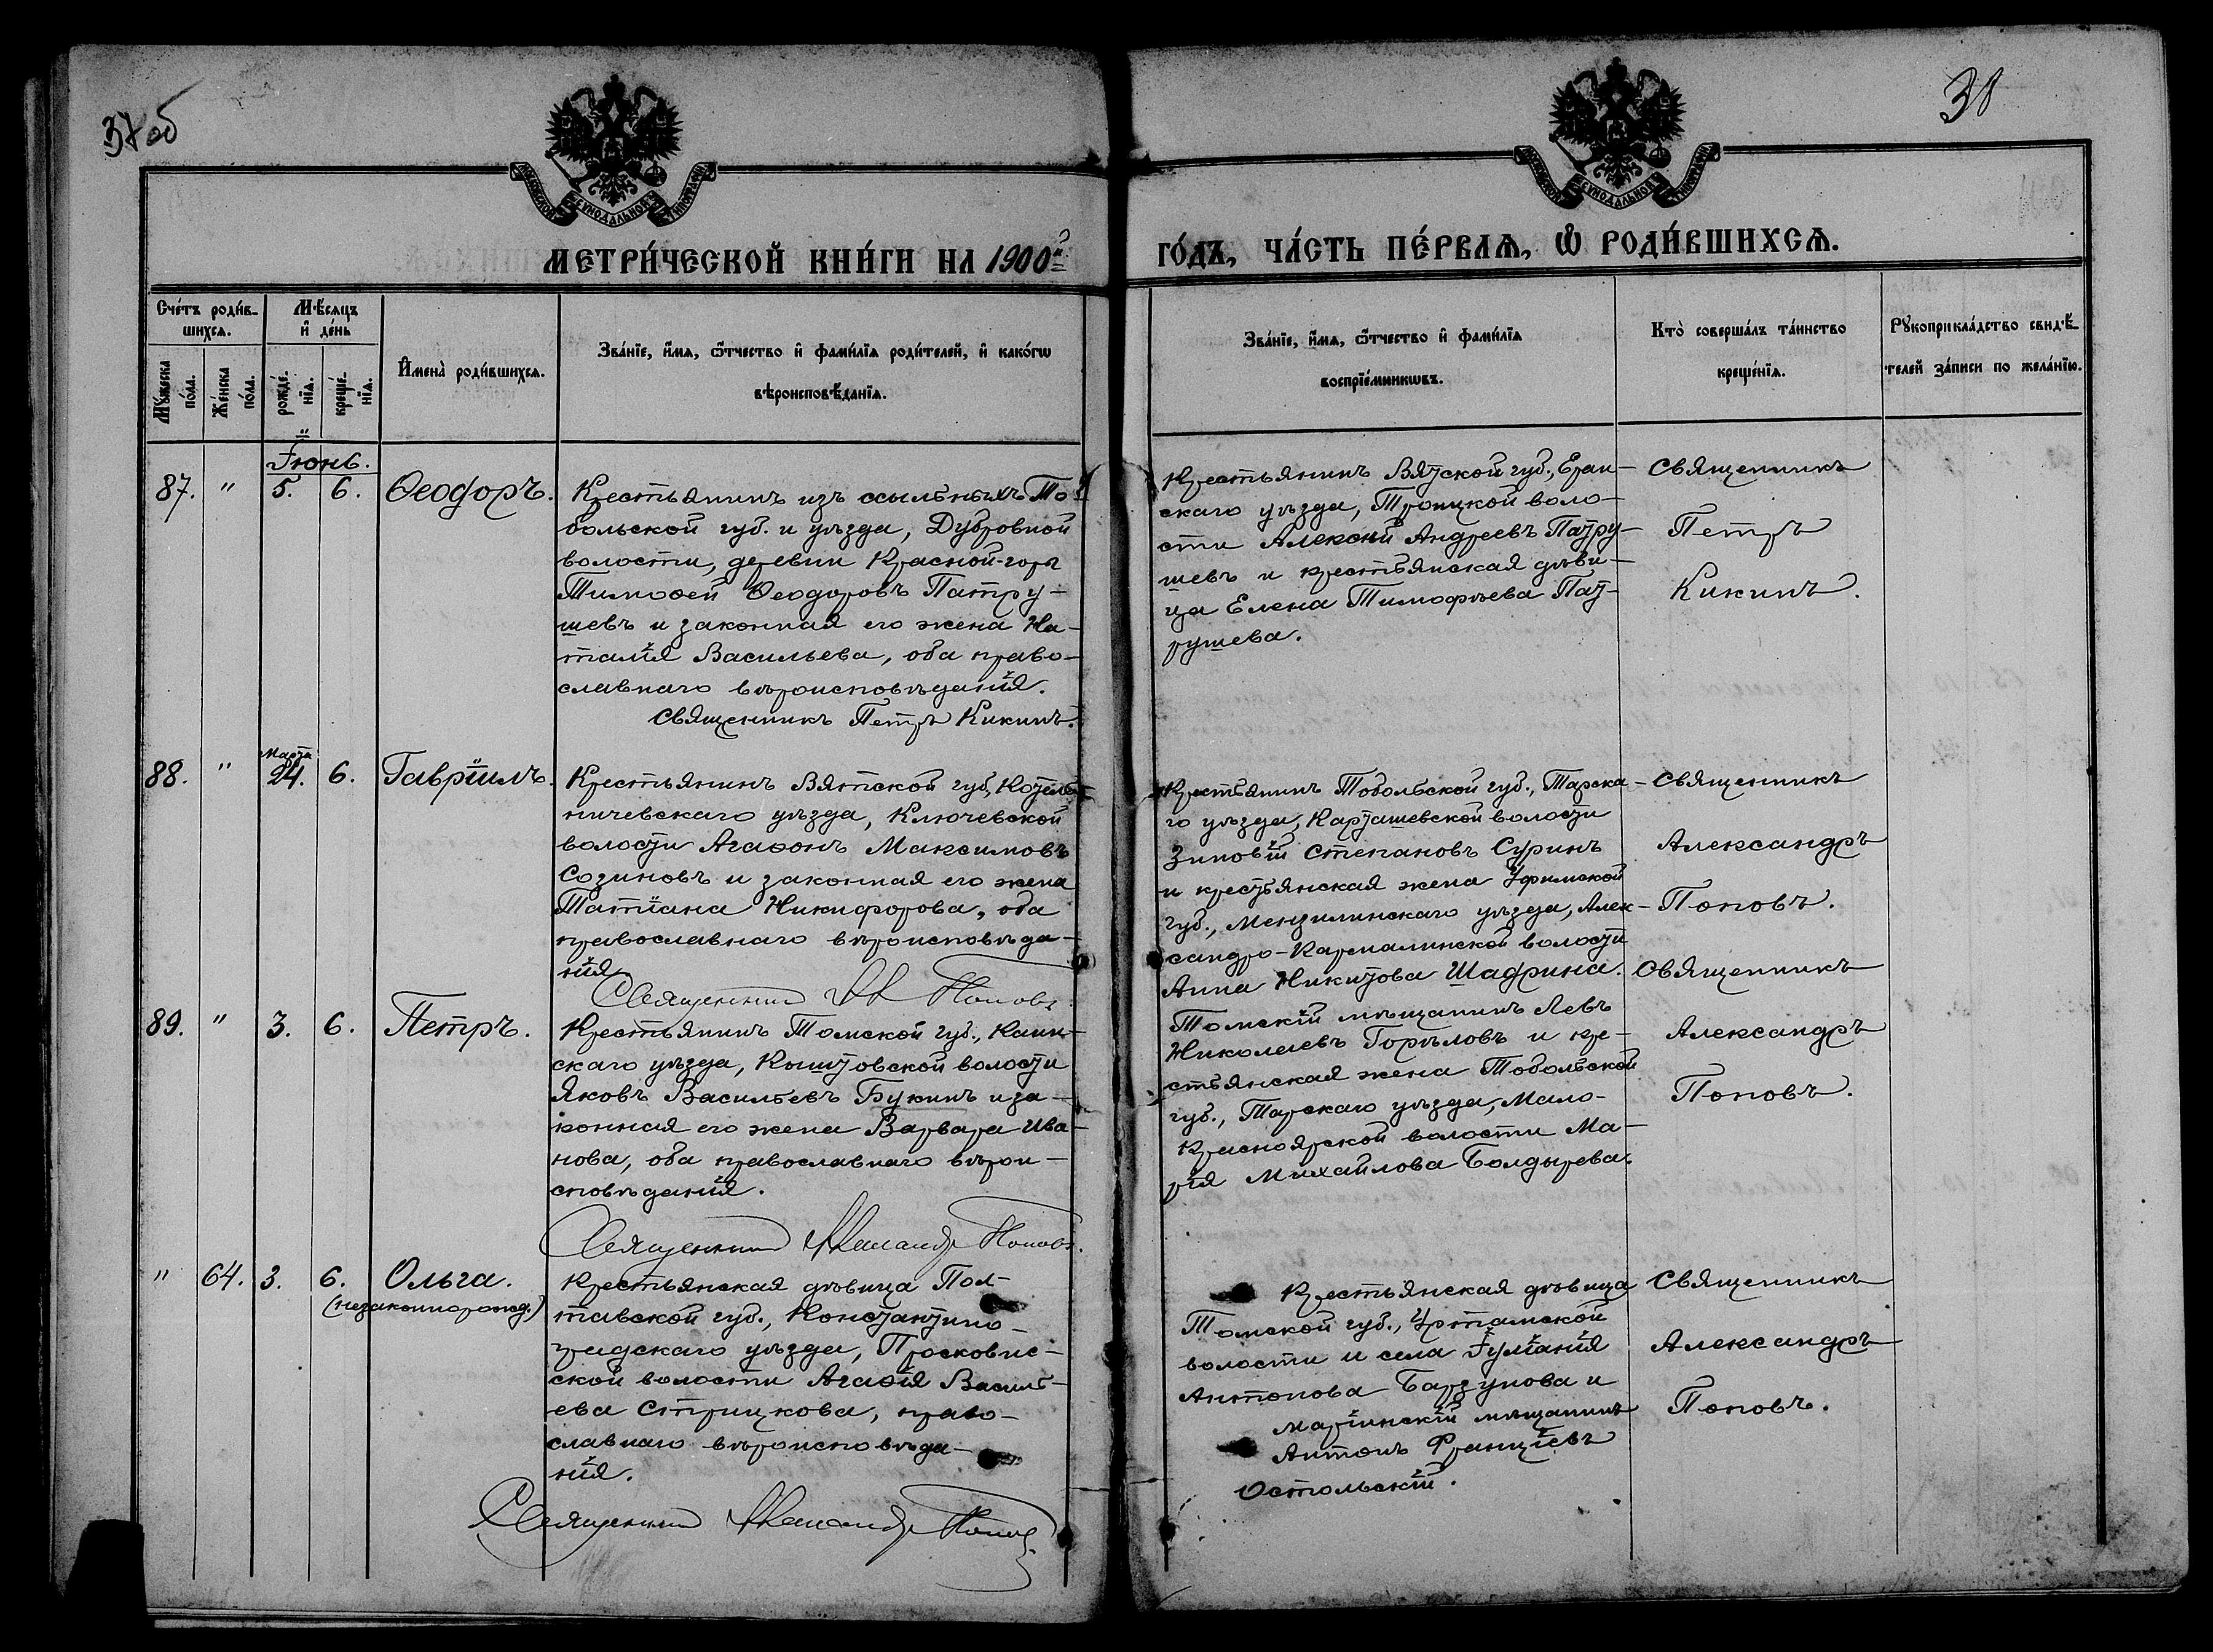 37об
38
МОСКОВСКОЙ СѴНОДАЛЬНОЙ ТИПОГРАФІИ
МОСКОВСКОЙ СѴНОДАЛЬНОЙ ТИПОГРАФІИ
МЕТРИ́ЧЕСКОЙ КНИ́ГИ НА 1900й
ГО́ДЪ, ЧА́СТЬ ПЕ́РВАѦ, Ѿ РОДИ́ВШИХСѦ.
Сче́тъ роди́в-
шихсѧ.
Мѣ́сѧцъ
и҆ де́нь
Мꙋ́жеска
по́ла.
Же́нска
по́ла.
рожде́-
нїѧ.
креще́-
нїѧ.
И҆мена̀ роди́вшихсѧ.
Зва́нїе, и҆́мѧ, ѻ҆́тчество и҆ фами́лїѧ роди́телей, и҆ како́гѡ
вѣроисповѣ́данїѧ.
Зва́нїе, и҆́мѧ, ѻ҆́тчество и҆ фами́лїѧ
воспрїе́мникѡвъ.
Кто̀ соверша́лъ та́инство
креще́нїѧ.
Рꙋкоприкла́дство свидѣ́-
телей за́писи по жела́нїю.
Іюнь.
87. " 5. 6. Ѳеодоръ.
Крестьянинъ изъ ссыльныхъ То-
больской губ. и уѣзда, Дубровной
волости, деревни Красной-горы
Тимоѳей Ѳеодоровъ Патру-
шевъ и законная его жена На-
талія Васильева, оба право-
славнаго вѣроисповѣданія.
Священникъ Петръ Кикинъ.
Крестьянинъ Вятской губ., Еран-
скаго уѣзда, Троицкой воло-
сти Алексѣй Андреевъ Патру-
шевъ и крестьянская дѣви-
ца Елена Тимофѣева Пат-
рушева.
Священникъ
Петръ
Кикинъ.
88. " Марта 24. 6. Гавріилъ.
Крестьянинъ Вятской губ., Котель-
ничевскаго уѣзда, Ключевской
волости Агаѳонъ Максимовъ
Созиновъ и законная его жена
Татіана Никифорова, оба
православнаго вѣроисповѣда-
нія.
Священникъ Ал Поповъ
Крестьянинъ Тобольской губ., Тарска-
го уѣзда, Карташевской волости
Зиновій Степановъ Суринъ
и крестьянская жена Уфимской
губ., Мензилинскаго уѣзда, Алек-
сандро-Кармалинской волости
Анна Никитова Шадрина.
Священникъ
Александръ
Поповъ.
89. " 3. 6. Петръ.
Крестьянинъ Томской губ., Каин-
скаго уѣзда, Кыштовской волости
Яковъ Васильевъ Букинъ и за-
конная его жена Варвара Ива-
нова, оба православнаго вѣрои-
сповѣданія.
Священникъ Александръ Поповъ.
Томскій мѣщанинъ Левъ
Николаевъ Горѣловъ и кре-
стьянская жена Тобольской
губ., Тарскаго уѣзда, Мало-
Красноярской волости Ма-
рія Михайлова Болдырева.
Священникъ
Александръ
Поповъ.
" 64. 3. 6. Ольга.
(незаконнорожд.)
Крестьянская дѣвица Пол-
тавской губ., Константино-
градскаго уѣзда,
ской волости Агаѳія Василь-
ева Стрицкова, право-
славнаго вѣроисповѣда-
нія.
Священникъ Александръ Поповъ.
Крестьянская дѣвица
Томской губ., Уртамской
волости и села Іуліанія
Антонова Барзунова и
Маріинскій мѣщанинъ
Антонъ Францієвъ
Остольскій.
Священникъ
Александръ
Поповъ.